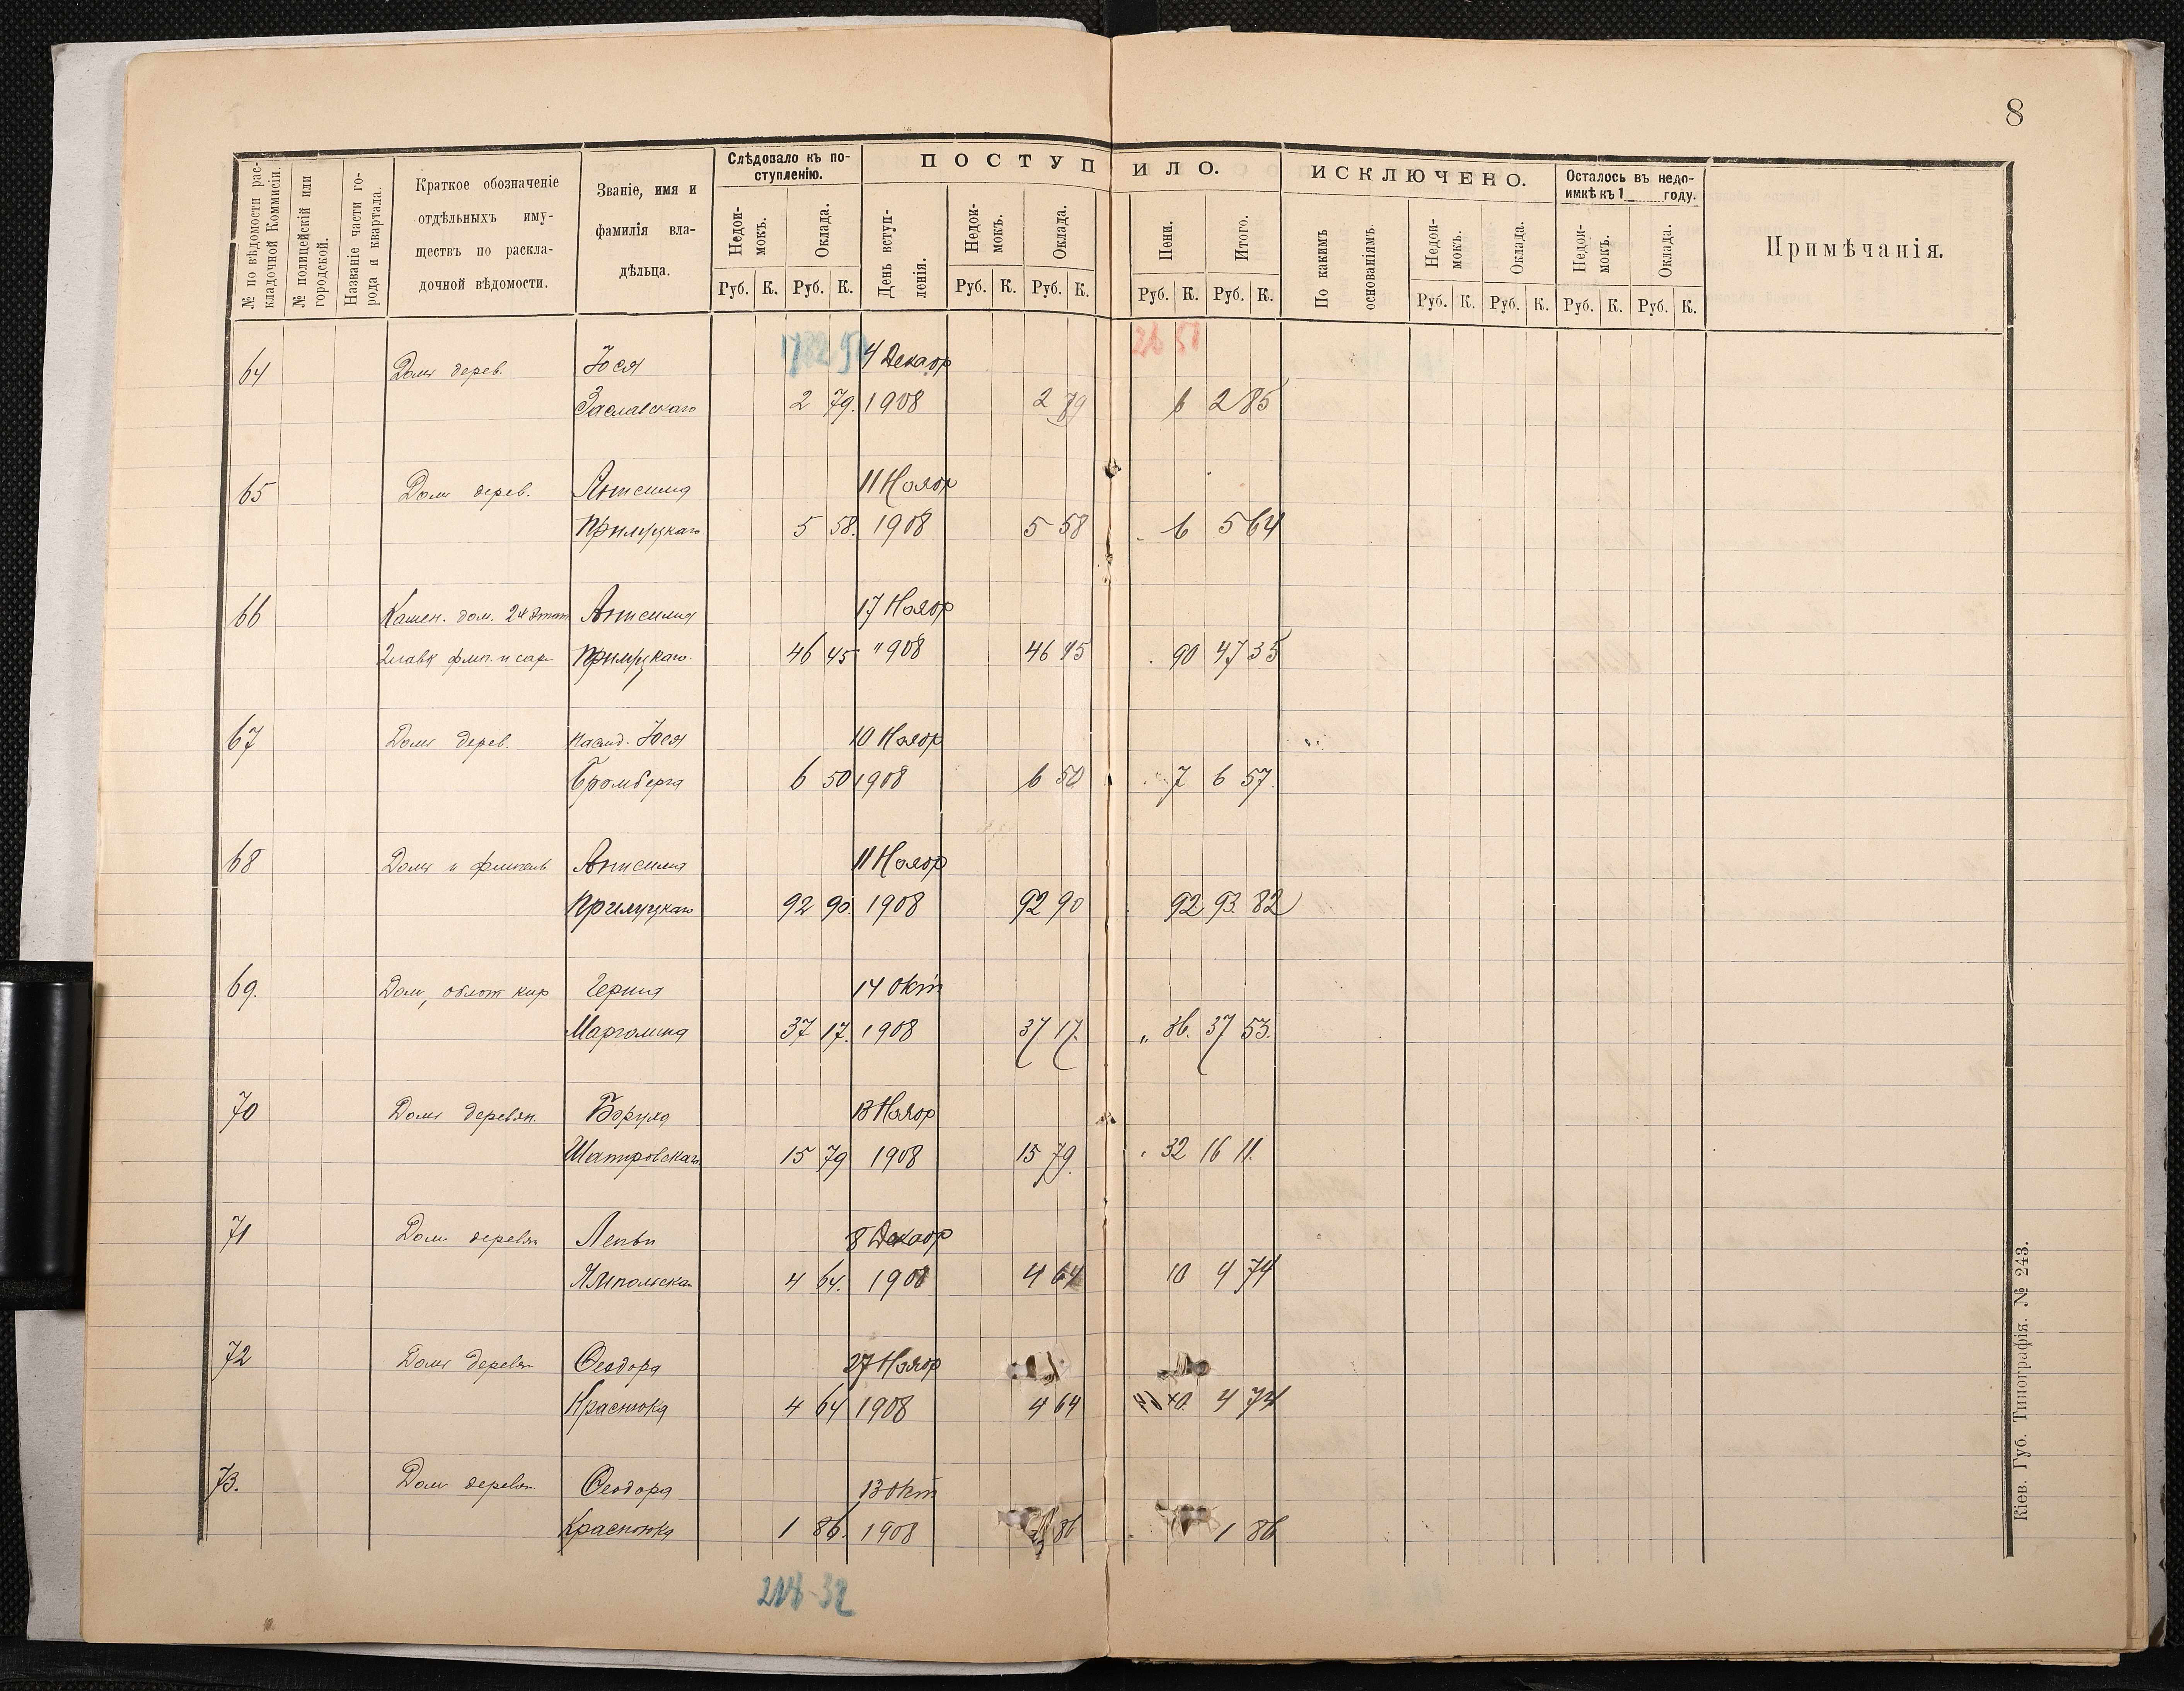 8
№ по вѣдомости рас-
кладочной Коммисіи.
№ полицейскій или
городской.
Названіе части го-
рода и квартала.
Краткое обозначеніе
отдѣльныхъ иму-
ществъ по раскла-
дочной вѣдомости.
Званіе, имя и
фамилія вла-
дѣльца.
Слѣдовало къ по-
ступленію.
Недои-
мокъ.
Оклада.
Руб. К. Руб. К.
ПОСТУПИЛО.
День вступ-
ленія.
Недои-
мокъ.
Оклада.
Пени.
Итого.
Руб. К. Руб. К. Руб. К. Руб. К.
ИСКЛЮЧЕНО.
По какимъ
основаніямъ.
Недои-
мокъ.
Оклада.
Руб. К. Руб. К.
Осталось въ недо-
имкѣ къ 1 году.
Недои-
мокъ.
Оклада.
Руб. К. Руб. К.
Примѣчанія.
64 Домъ дерев. Юся 4 Декабр
Заславскаго 2 79. 1908 2 79 6 2 85
65 Домъ дерев. 11 Ноябр
Прилуцкаго 5 58. 1908 5 58 6 5 64
66 Камен. дом. 17 Ноябр
Прилуцкаго. 46 45 "908 46 45 90 47 35
67 Домъ дерев. наслѣд. Юся 10 Ноябр
Бромберга 6 50 1908 6 50 7 6 57.
68 Домъ и флигель 11 Ноябр
Прилуцкаго 92 90. 1908 92 90 92 93 82
69. Дом, облож кир 14 Окт
Марголина 37 17. 1908 37 17. " 36. 37 53.
70 Домъ деревян. Боруха 13 Ноябр
15 79 1908 15 79. 32 16 11.
71 Домъ деревян 8 Декабр
Ямпольскаго 4 64. 1908 4 64 10 4 74
72 Домъ деревян Ѳеодора 27 Ноябр
Краснюка 4 64 1908 4 64 10. 4 74
73. Домъ деревян. Ѳеодора 13 Окт
Краснюка 1 86. 1908 86 1 86
Кіев. Губ. Типографія. № 243.